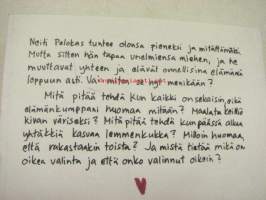 Neiti Palokas tuntee olonsa pieneksi ja mitättömäksi.
Mutta sitten hän tapaa unelmiensa miehen, ja he
muuttavat yhteen ja elävät onnellisina elämänsä
loppuun asti. Vai miten se nyt menikään?
Mitä pitää tehdä kun kaikki on sekaisin, eikä
elämänkumppani huomaa mitään? Maalata keittiö
kivan väriseksi? Mitä pitää tehdä kun päässä alkaa
yhtäkkiä kasvaa lemmenkukka? Milloin huomaa,
että rakastaakin toista? Ja mistä tietää mikä on
oikea valinta ja että onko valinnut oikein?